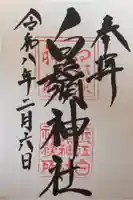 奉拝
白鬚神社
令和八年二月六日